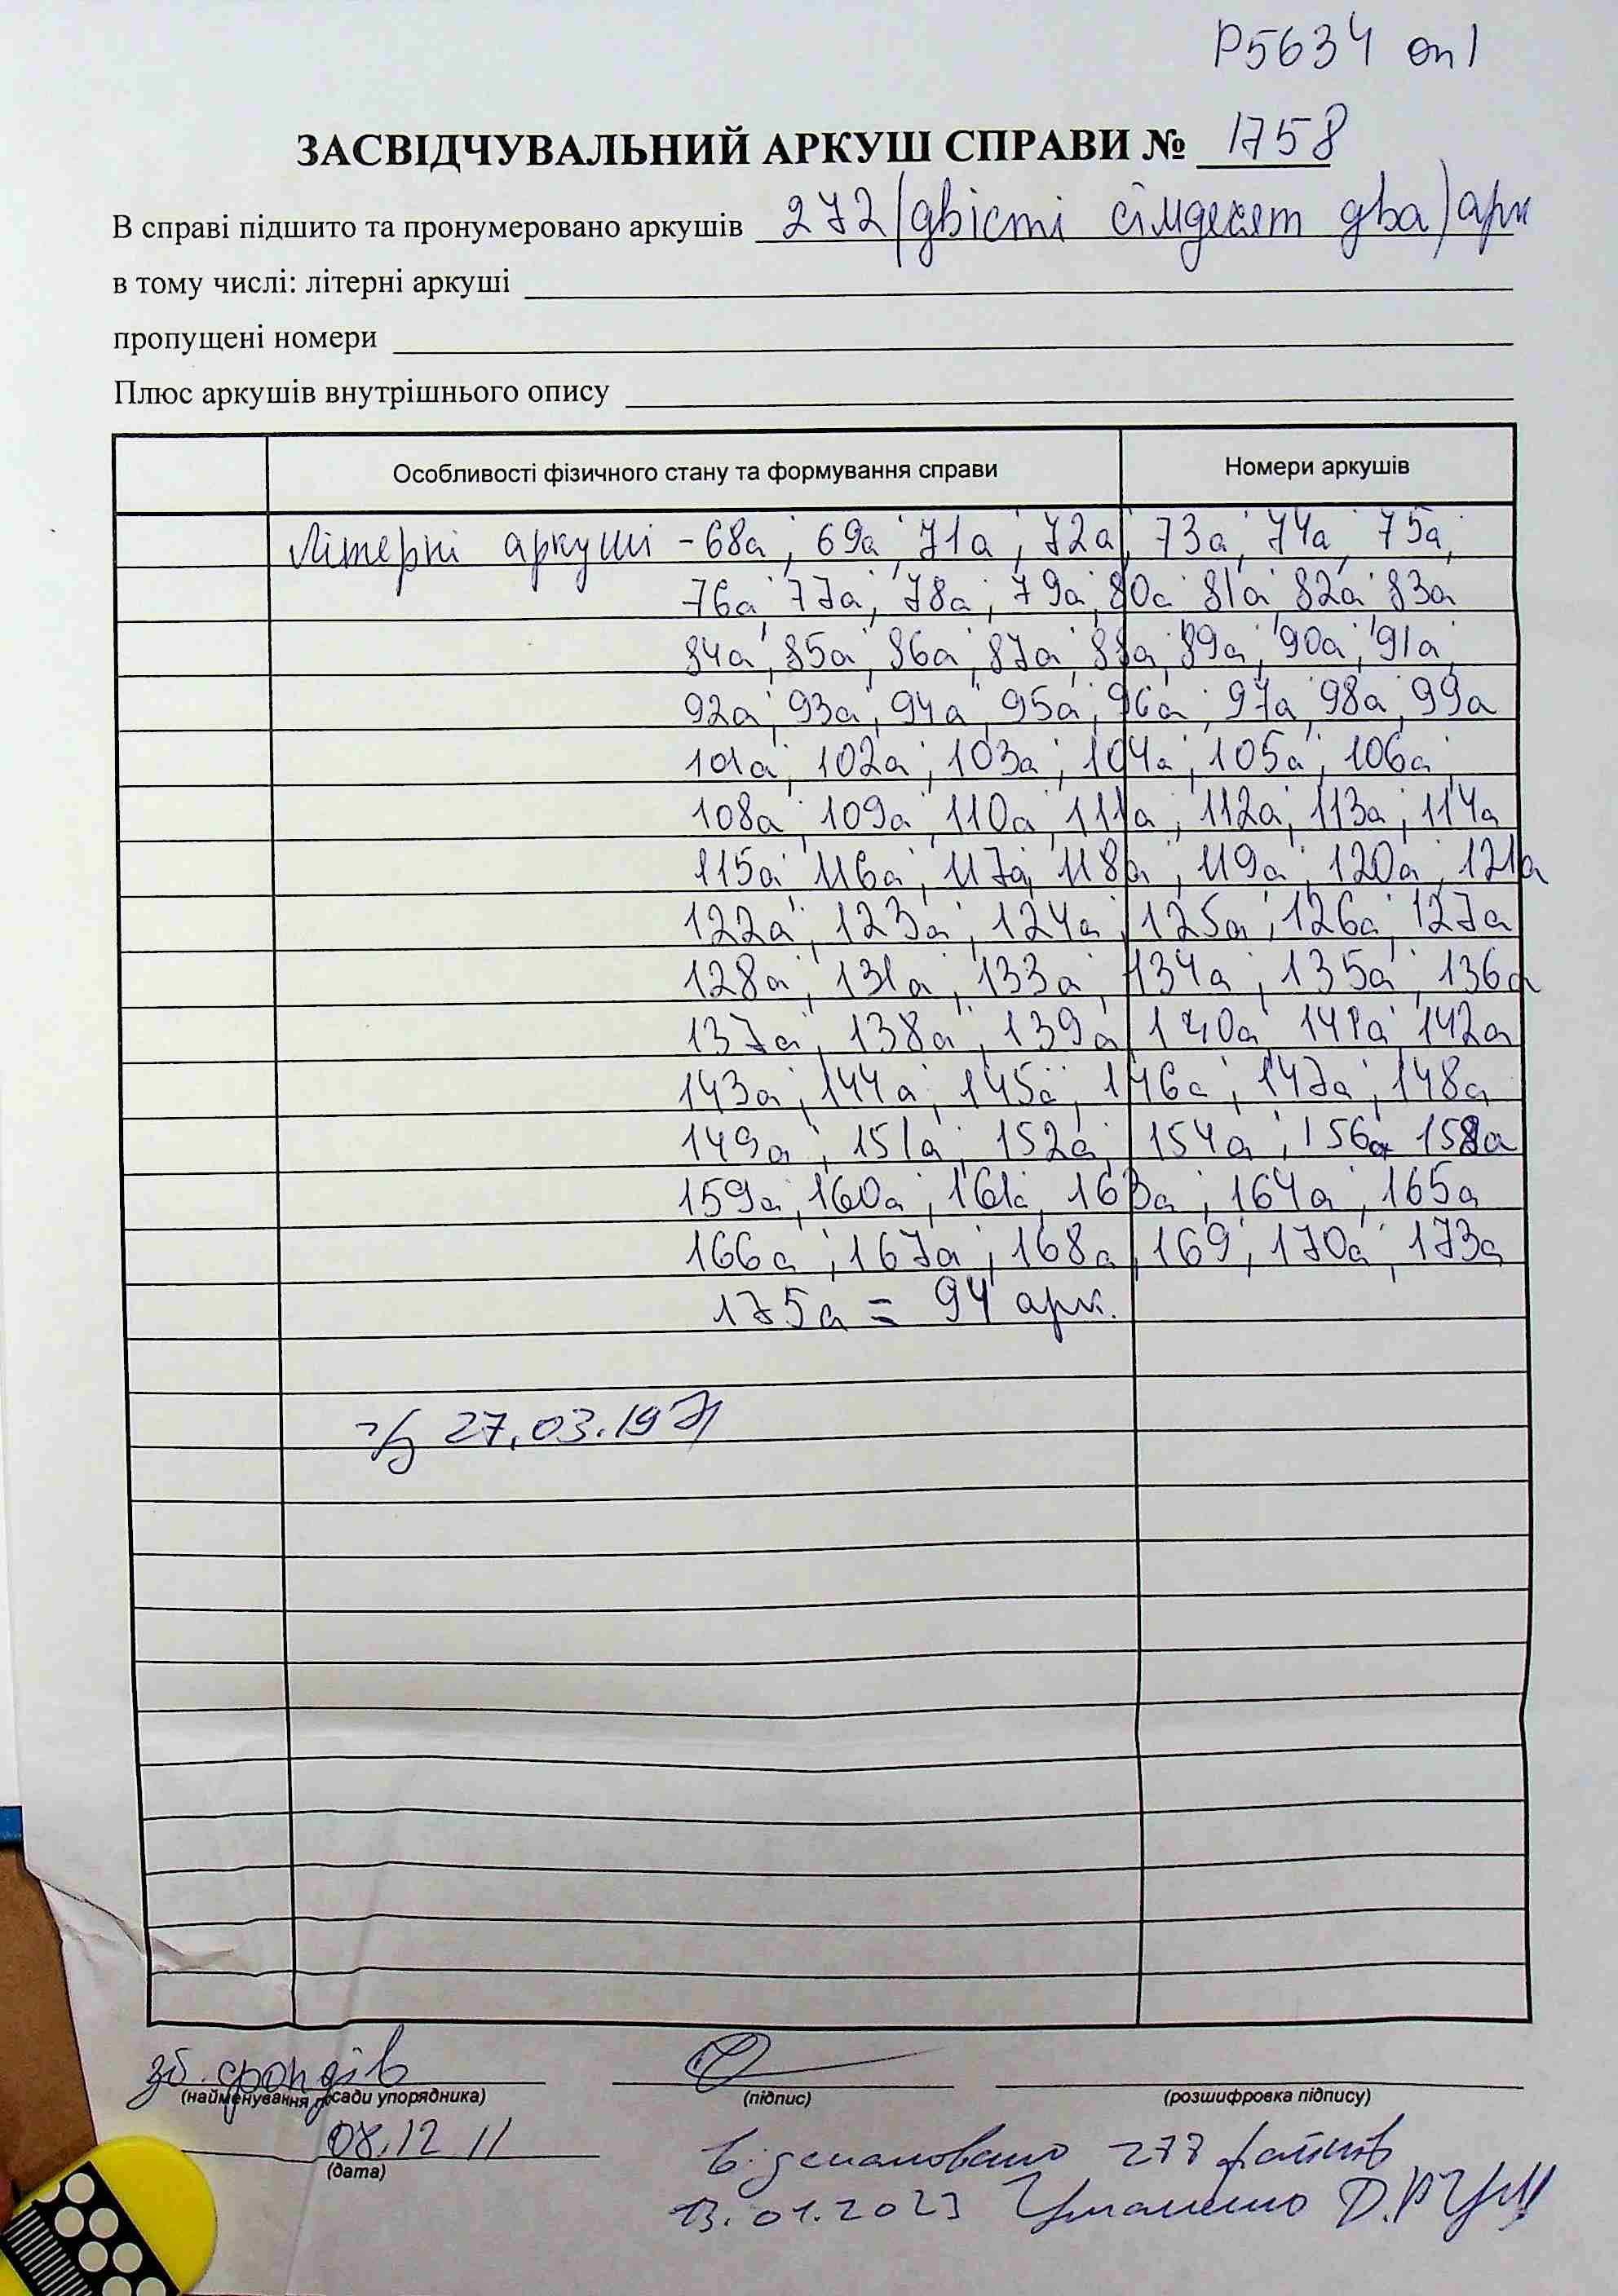 Р5634 оп1
ЗАСВІДЧУВАЛЬНИЙ АРКУШ СПРАВИ № 1758
В справі підшито та пронумеровано аркушів 272/двісті сімдесят два/арк
в тому числі: літерні аркуші
пропущені номери
Плюс аркушів внутрішнього опису
Особливості фізичного стану та формування справи Номери аркушів
Літерні аркуші - 68а; 69а; 71а; 72а; 73а; 74а; 75а;
76а; 77а; 78а; 79а; 80а; 81а; 82а; 83а
84а; 85а; 86а; 87а; 88а; 89а; 90а; 91а;
92а; 93а; 94а; 95а; 96а; 97а; 98а; 99а
101а; 102а; 103а; 104а; 105а; 106а;
108а; 109а; 110а; 111а; 112а; 113а; 114а
115а; 116а; 117а; 118а; 119а; 120а; 121а
122а; 123а; 124а; 125а; 126а; 127а
128а; 131а; 133а; 134а; 135а; 136а
137а; 138а; 139а; 140а; 141а; 142а
143а; 144а; 145а; 146а; 147а; 148а
149а; 151а; 152а; 154а; 156а 158а
159а; 160а; 161а; 163а; 164а; 165а
166а; 167а; 168а; 169; 170а; 173а
175а = 94 арк.
27.03.1971
зб. фондів
(найменування посади упорядника) (підпис) (розшифровка підпису)
08.12 11
(дата)
Відскановано 277 файлів
13.01.2023